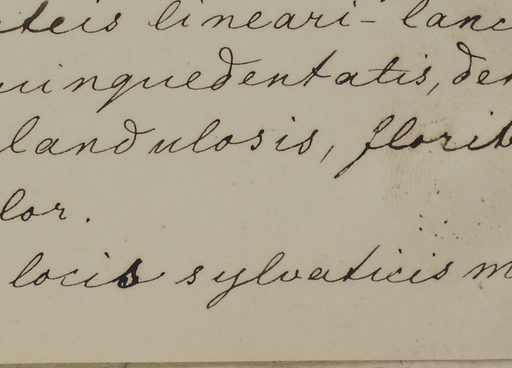 cteis lineari-lanc
uinquedentatis, den
landulosis, florib
lor.
locis sylvaticis m